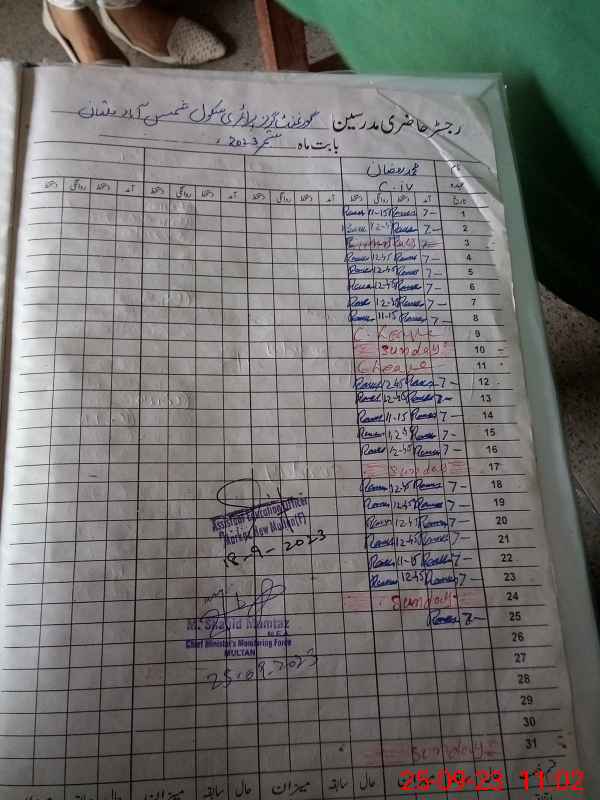 رجسٹر حاضری مدرسین گورنمنٹ گرلز پرائمری سکول شمس آباد ملتان
بابت ماہ ستمبر 2023ء
نام محمد رمضان
عہدہ C.IV
تاریخ آمد دستخط روانگی دستخط آمد دستخط روانگی دستخط آمد دستخط روانگی دستخط
1 7- 11-15
2 7- 12-45
3 Sunday
4 7- 12-45
5 7- 12-45
6 7- 12-45
7 7- 12-45
8 7- 11-15
9 C. Leave
10 Sunday
11 C Leave
12 7- 12-45
13 7- 12-45
14 7- 11-15
15 7- 12-45
16 7- 12-45
17 Sunday
18 7- 12-45
19 7- 12-45
20 7- 12-45
21 7- 12-45
22 7- 11-15
23 7- 12-45
24 Sunday
25 7-
26
27
28
29
30
31 Sunday
Assistant Education Officer
Markaz New Multan (F)
18-9-2023
M. Shajid Mumtaz
M.E.A
Chief Minister's Monitoring Force
MULTAN
25-09-2023
میزان حال سابقہ میزان حال سابقہ
25-09-23 11:02